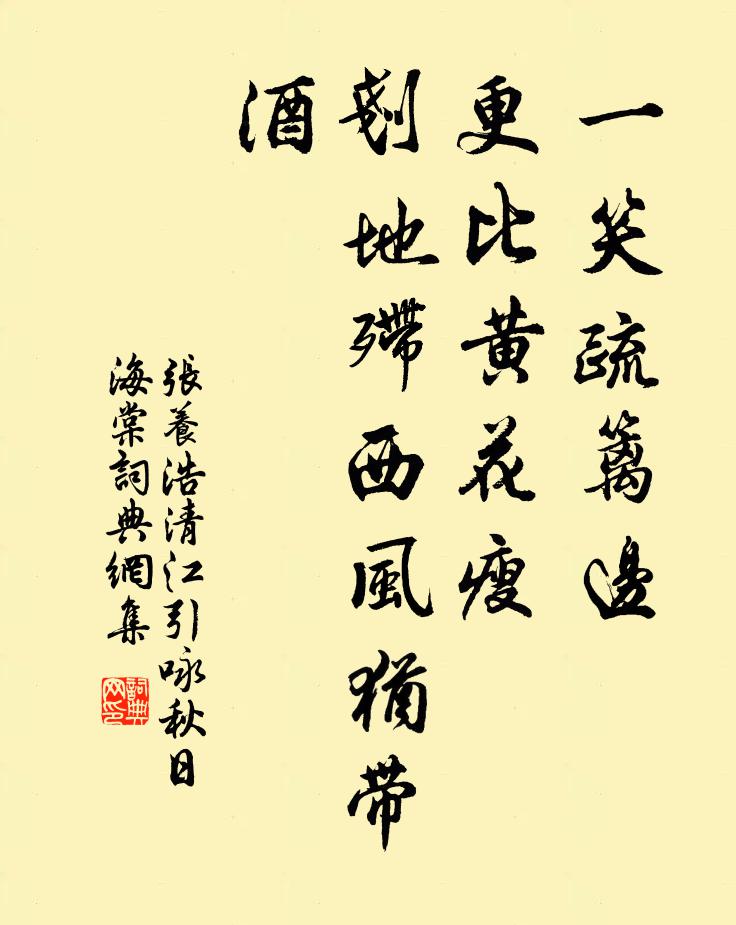 一笑疏篱邊
更比黄花瘦
剗地殢西風猶带
酒
張養浩清江引咏秋日
海棠詞典網集
詞典
网印